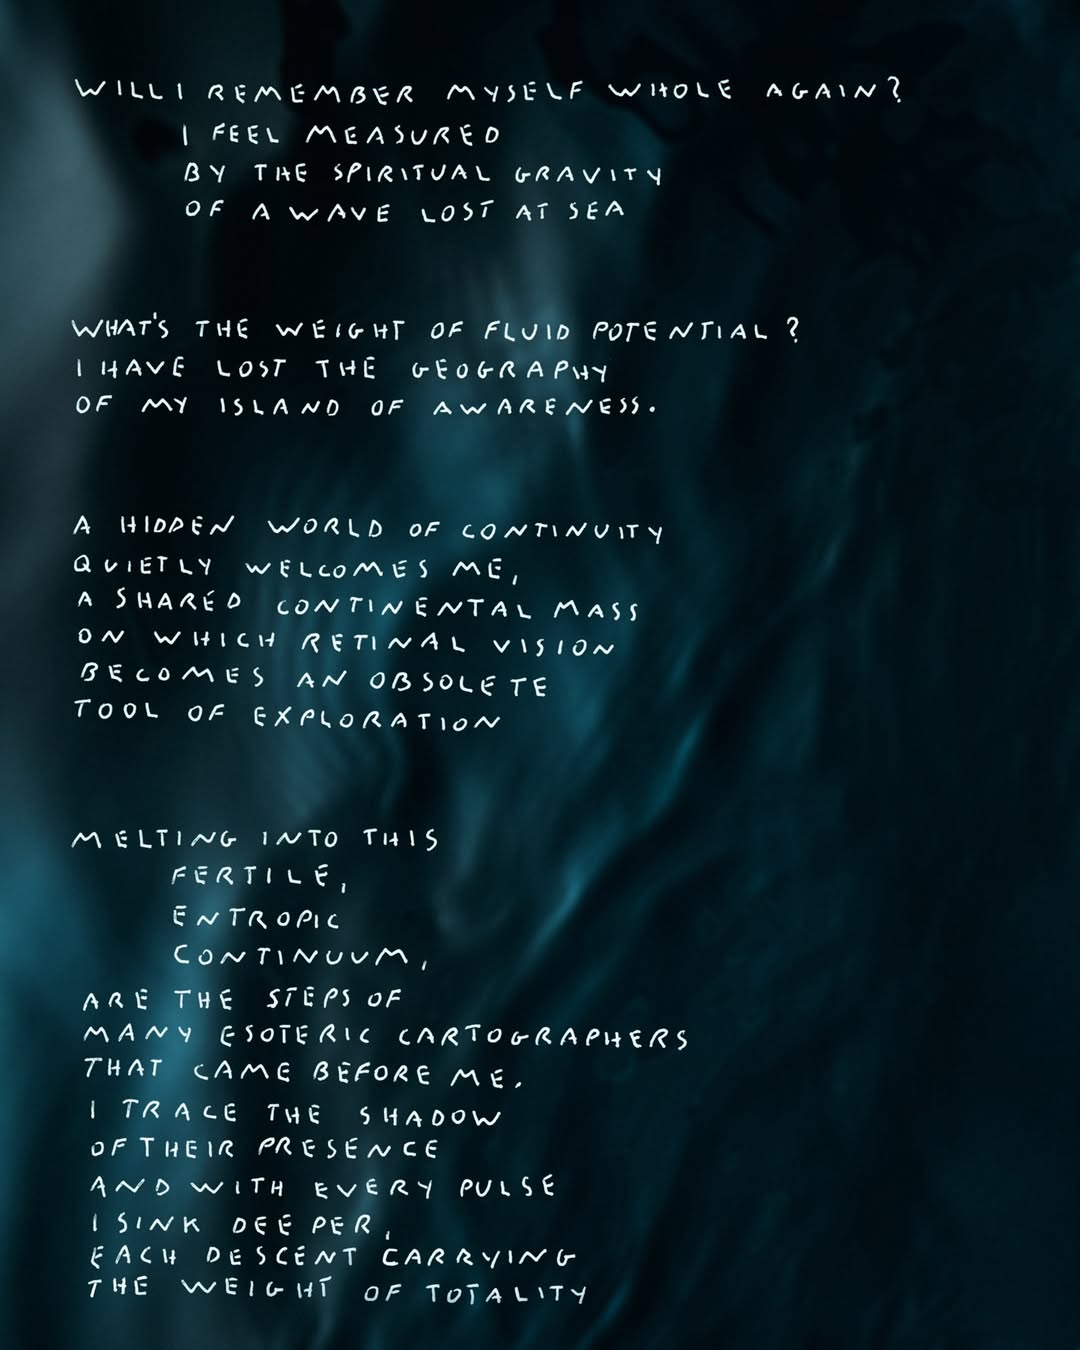 WILL I REMEMBER MYSELF WHOLE AGAIN?
I FEEL MEASURED
BY THE SPIRITUAL GRAVITY
OF A WAVE LOST AT SEA
WHAT'S THE WEIGHT OF FLUID POTENTIAL?
I HAVE LOST THE GEOGRAPHY
OF MY ISLAND OF AWARENESS.
A HIDDEN WORLD OF CONTINUITY
QUIETLY WELCOMES ME,
A SHARED CONTINENTAL MASS
ON WHICH RETINAL VISION
BECOMES AN OBSOLETE
TOOL OF EXPLORATION
MELTING INTO THIS
FERTILE,
ENTROPIC
CONTINUUM,
ARE THE STEPS OF
MANY ESOTERIC CARTOGRAPHERS
THAT CAME BEFORE ME.
I TRACE THE SHADOW
OF THEIR PRESENCE
AND WITH EVERY PULSE
I SINK DEEPER,
EACH DESCENT CARRYING
THE WEIGHT OF TOTALITY